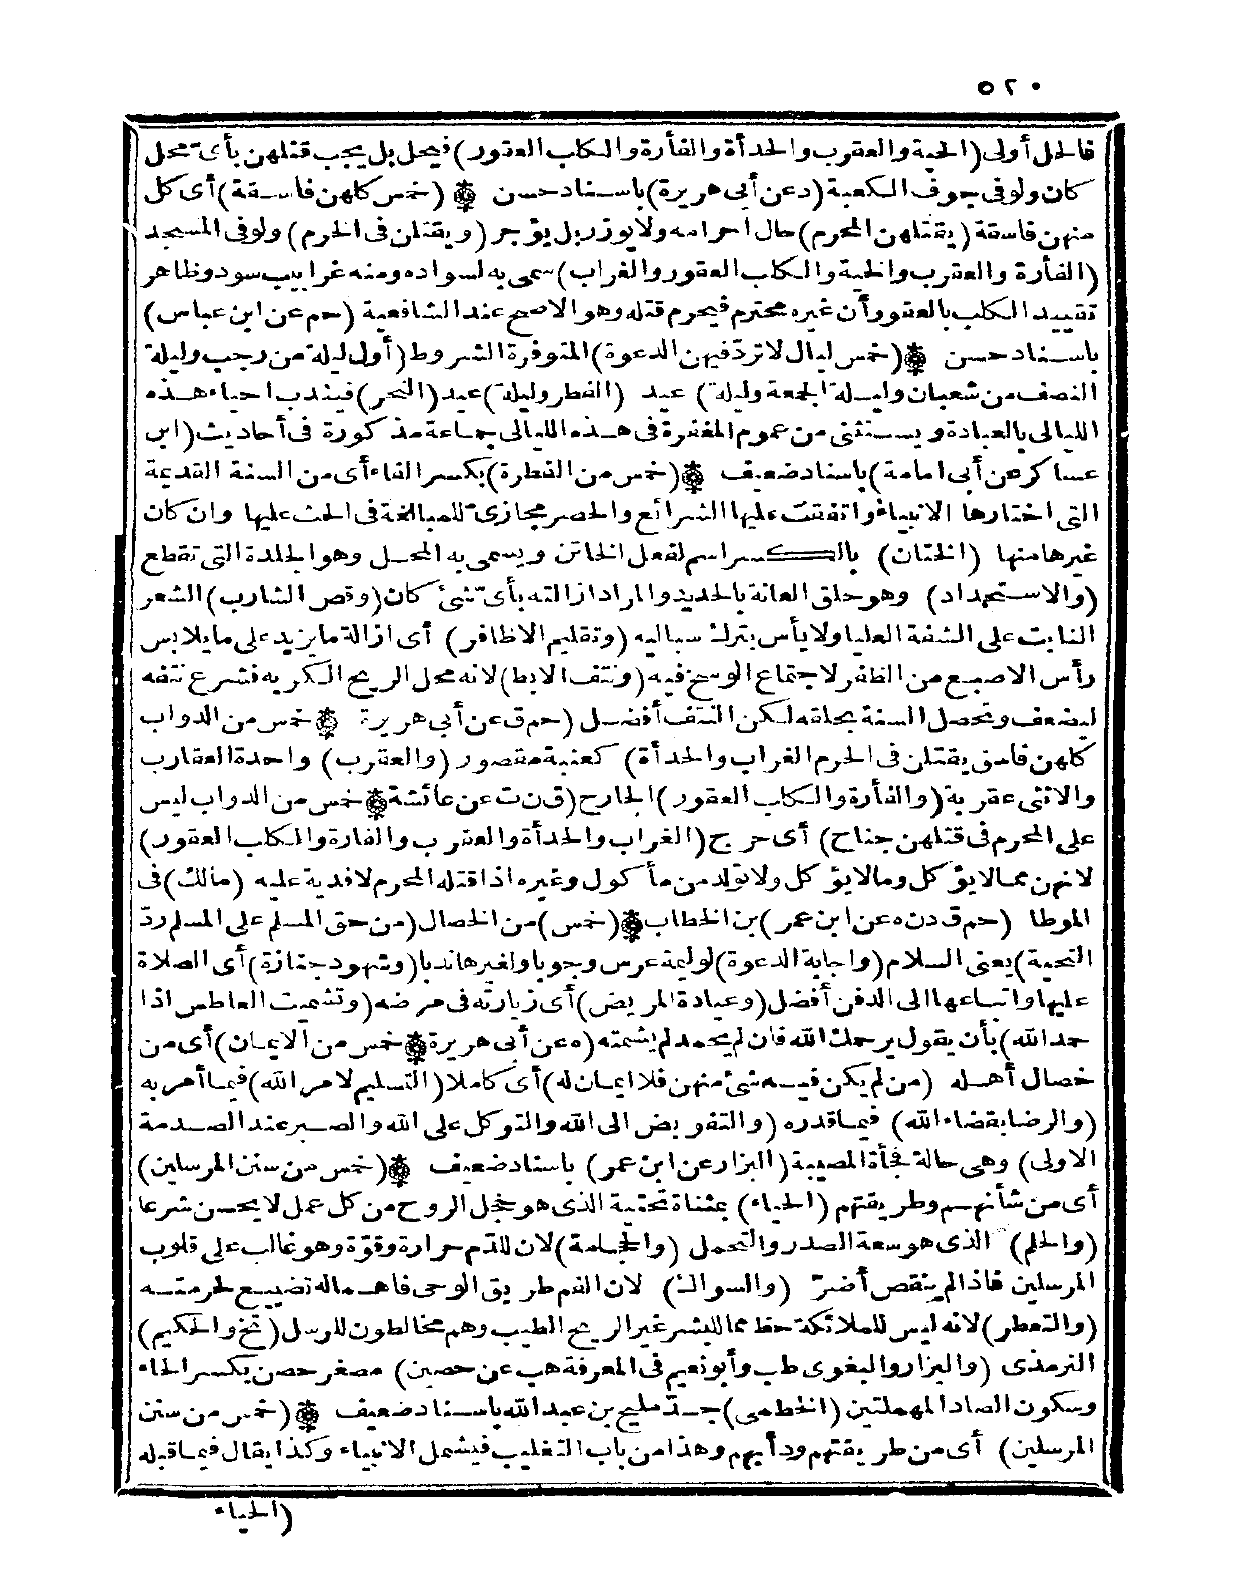 ٥٢٠
فالحل أولى (الحية والعقرب والحدأة والفأرة والكلب العقور) فيحل بل يجب قتلهن بأى محل
كان ولو فى جوف الكعبة (د عن أبى هريرة) باسناد حسن ۞ (خمس كلهن فاسقة) أى كل
منهن فاسقة (يقتلهن المحرم) حال احرامه ولا يوزر بل يؤجر (ويقتلن فى الحرم) ولو فى المسجد
(الفأرة والعقرب والحية والكلب العقور والغراب) سمى به لسواده ومنه غرابيب سود وظاهر
تقييد الكلب بالعقور أن غيره محترم فيحرم قتله وهو الاصح عند الشافعية (حم عن ابن عباس)
باسناد حسن ۞ (خمس ليال لا تردّ فيهن الدعوة) المتوفرة الشروط (أول ليلة من رجب وليلة
النصف من شعبان وليلة الجمعة وليلة) عيد (الفطر وليلة) عيد (النحر) فيندب احياء هذه
الليالى بالعبادة ويستثنى من عموم المغفرة فى هذه الليالى جماعة مذكورة فى أحاديث (ابن
عساكر عن أبى امامة) باسناد ضعيف ۞ (خمس من الفطرة) بكسر الفاء أى من السنة القديمة
التى اختارها الانبياء واتفقت عليها الشرائع والحصر مجازىّ للمبالغة فى الحث عليها وان كان
غيرها منها (الختان) بالكسر اسم لفعل الخاتن ويسمى به المحل وهو الجلدة التى تقطع
(والاستحداد) وهو حلق العانة بالحديد والمراد ازالته بأىّ شئ كان (وقص الشارب) الشعر
النابت على الشفة العليا ولا بأس بترك سباليه (وتقليم الاظافر) أى ازالة ما يزيد على ما يلابس
رأس الاصبع من الظفر لاجتماع الوسخ فيه (ونتف الابط) لانه محل الريح الكريه فشرع نتفه
ليضعف وتحصل السنة بحلقه لكن النتف أفضل (حم ق عن أبى هريرة ۞ خمس من الدواب
كلهن فاسق يقتلن فى الحرم الغراب والحدأة) كعنبة مقصور (والعقرب) واحدة العقارب
والانثى عقربة (والفأرة والكلب العقور) الجارح (ق ن ت عن عائشة ۞ خمس من الدواب ليس
على المحرم فى قتلهن جناح) أى حرج (الغراب والحدأة والعقرب والفارة والكلب العقور)
لانهن مما لا يؤكل وما لا يؤكل ولا تولد من مأكول وغيره اذا قتله المحرم لا فدية عليه (مالك) فى
الموطا (حم ق د ن ه عن ابن عمر) بن الخطاب ۞ (خمس) من الخصال (من حق المسلم على المسلم ردّ
التحية) يعنى السلام (واجابة الدعوة) لوليمة عرس وجوبا ولغيرها ندبا (وشهود جنازة) أى الصلاة
عليها واتباعها الى الدفن أفضل (وعيادة المريض) أى زيارته فى مرضه (وتشميت العاطس اذا
حمد الله) بأن يقول يرحمك الله فان لم يحمد لم يشمته (ه عن أبى هريرة ۞ خمس من الايمان) أى من
خصال أهله (من لم يكن فيه شئ منهن فلا ايمان له) أى كاملا (التسليم لامر الله) فيما أمر به
(والرضا بقضاء الله) فيما قدره (والتفويض الى الله والتوكل على الله والصبر عند الصدمة
الاولى) وهى حالة فجأة المصيبة (البزار عن ابن عمر) باسناد ضعيف ۞ (خمس من سنن المرسلين)
أى من شأنهم وطريقتهم (الحياء) بمثناة تحتية الذى هو خجل الروح من كل عمل لا يحسن شرعا
(والحلم) الذى هو سعة الصدر والتحمل (والحجامة) لان للدم حرارة وقوّة وهو غالب على قلوب
المرسلين فاذا لم ينقص أضرّ (والسواك) لان الفم طريق الوحى فاهماله تضييع لحرمته
(والتعطر) لانه ليس للملائكة حظ مما للبشر غير الريح الطيب وهم مخالطون للرسل (تخ والحكيم)
الترمذى (والبزار والبغوى طب وأبو نعيم فى المعرفة هب عن حصين) مصغر حصن بكسر الحاء
وسكون الصاد المهملتين (الخطمى) جدّ مليح بن عبد الله باسناد ضعيف ۞ (خمس من سنن
المرسلين) أى من طريقتهم ودأبهم وهذا من باب التغليب فيشمل الانبياء وكذا يقال فيما قبله
(الحياء